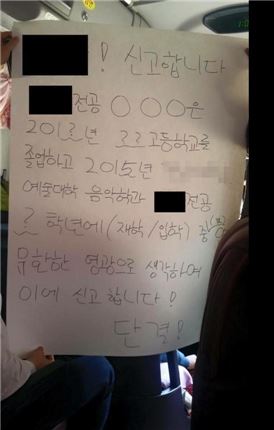 ! 신고합니다
전공 ○○○은
201?년 ??고등학교를
졸업하고 2015년
예술대학 음악학과 전공
? 학년에 (재학/입학) 중
무한한 영광으로 생각하여
이에 신고합니다!
단결!